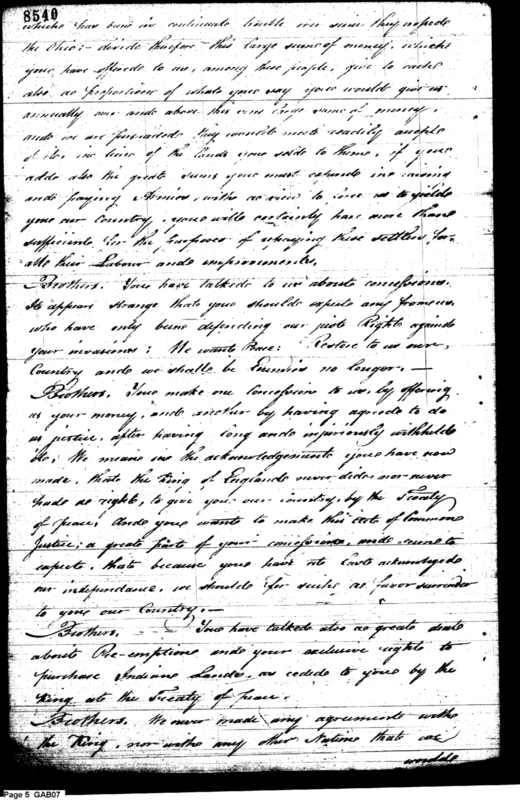 8540
which has been in continuate trouble ever since they crossed
the Ohio; - divide therefore this large sum of money, which
you have offered to us, among these people, give to each
also a proportion of what you say you would give us
annually over and above this very large sum of money,
and we are persuaded they would most readily accept
of it, in lieu of the lands you sold to them, if you
add also the great sums you must expend in raising
and paying Armies, with a view to force us to yield
you our Country, you will certainly have more than
sufficient for the purposes of repaying these settlers for
all their Labour and improvements.
Brothers. You have talked to us about concessions.
It appears strange that you should expect any from us,
who have only been defending our just Rights against
your invasions; We want Peace: Restore to us our
Country and we shall be Enemies no longer. —
Brothers. You make one Concession to us, by offering
us your money, and another by having agreed to do
us justice, after having long and injuriously withheld
it; We mean in the acknowledgement you have now
made, that the King of England never did, nor never
had a right, to give you our Country, by the Treaty
of peace, And you want to make this act of Common
Justice, a great part of your concessions, and seem to
expect, that because you have at last acknowledged
our independance, we should for such a favor surrender
to you our Country. —
Brothers. — You have talked also a great deal
about Pre-emption and your exclusive right to
purchase Indian Lands, as ceded to you by the
King at the Treaty of peace.
Brothers. We never made any agreement with
the King, nor with any other Nation that we
would
Page 5 GAB07